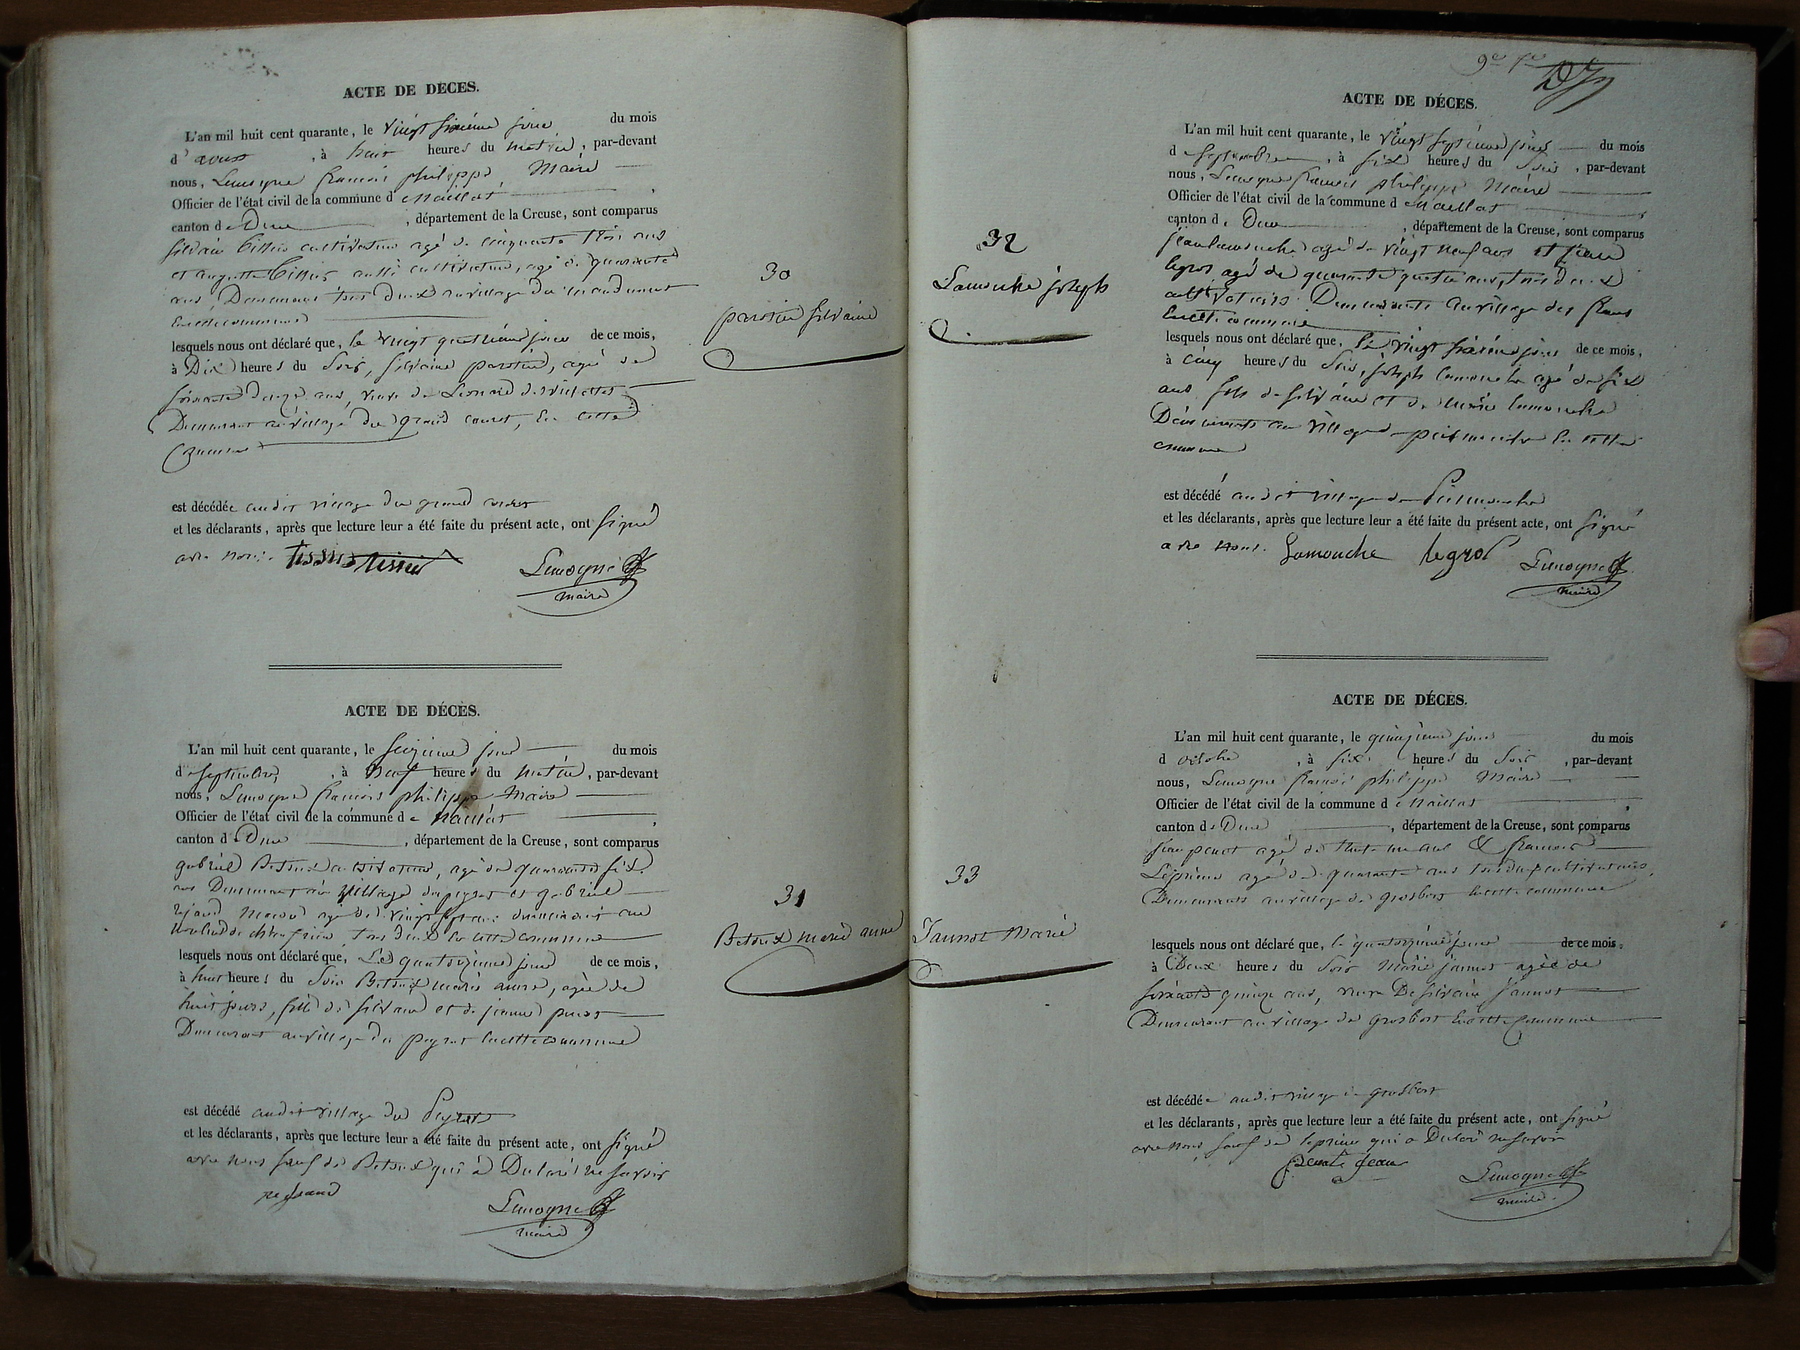 ACTE DE DÉCES.
L'an mil huit cent quarante, le vingt sixième jour du mois
d'aoust, à huit heures du matin, par-devant
nous, Limogne francois philippe Maire
Officier de l'état civil de la commune de Naillat
canton de Dun, département de la Creuse, sont comparus
silvain tissier cultivateur agé de cinquante trois ans
et auguste tissier aussi cultivateur, agé de quarante
ans Demeurant tous deux au village du
en cette commune
lesquels nous ont déclaré que, le vingt quatrième jour de ce mois,
à Dix heures du Soir, silvaine parotin, agée de
soixante douze ans, veuve de Leonard desvilettes
Demeurant au village du grand couret, En cette
Commune
est décédée audit village du grand couret
et les déclarants, après que lecture leur a été faite du présent acte, ont signé
avec nous. tissier tissier Limogne
maire
30
parotin silvaine
ACTE DE DÉCÈS.
L'an mil huit cent quarante, le seizieme jour du mois
de septembre, à neuf heures du matin, par-devant
nous, Limogne francois philippe Maire
Officier de l'état civil de la commune de Naillat
canton de Dun, département de la Creuse, sont comparus
gabriel Betoux cultivateur, agé de quarante six
ans Demeurant au village du peyrat et gabriel
agé de vingt sept ans demeurant au
tous deux en cette commune
lesquels nous ont déclaré que, Le quatorzieme jour de ce mois,
à huit heures du Soir Betoux marie anne, agée de
huit jours, fille de silvain et de jeanne
Demeurant au village du peyrat en cette commune
est décédé audit village du Peyrat
et les déclarants, après que lecture leur a été faite du présent acte, ont signé
avec nous sauf de Betoux qui a Déclaré ne savoir
Limogne
maire
31
Betoux marie anne
ACTE DE DÉCES.
L'an mil huit cent quarante, le vingt septieme jour du mois
de septembre, à six heures du Soir, par-devant
nous, Limogne francois philippe Maire
Officier de l'état civil de la commune de Naillat
canton de Dun, département de la Creuse, sont comparus
jean lamouche agé de vingt neuf ans et jean
legros agé de quarante quatre ans, tous deux
cultivateurs Demeurants au village des
En cette commune
lesquels nous ont déclaré que, le vingt sixième jour de ce mois,
à cinq heures du Soir, joseph lamouche agé de six
ans fils de silvain et de marie lamouche
Demeurants au village de puismouche En cette
commune
est décédé audit village de Puismouche
et les déclarants, après que lecture leur a été faite du présent acte, ont signé
avec nous. Lamouche legros Limogne
maire
32
Lamouche joseph
ACTE DE DÉCÈS.
L'an mil huit cent quarante, le quinzieme jour du mois
d'octobre, à six heures du Soir, par-devant
nous, Limogne francois philippe Maire
Officier de l'état civil de la commune de Naillat
canton de Dun, département de la Creuse, sont comparus
jean agé de trente ans & francois
Leprieur agé de quarante ans tous deux cultivateurs,
Demeurants au village de grosbost en cette commune
lesquels nous ont déclaré que, le quatorzieme jour de ce mois,
à Deux heures du Soir Marie jannot agée de
soixante quinze ans, veuve De silvain Jannot
Demeurant au village de grosbost En cette Commune
est décédée audit village de grosbost
et les déclarants, après que lecture leur a été faite du présent acte, ont signé
avec nous, sauf de leprieur qui a Déclaré ne savoir
jean Limogne
maire
33
Jannot Marie